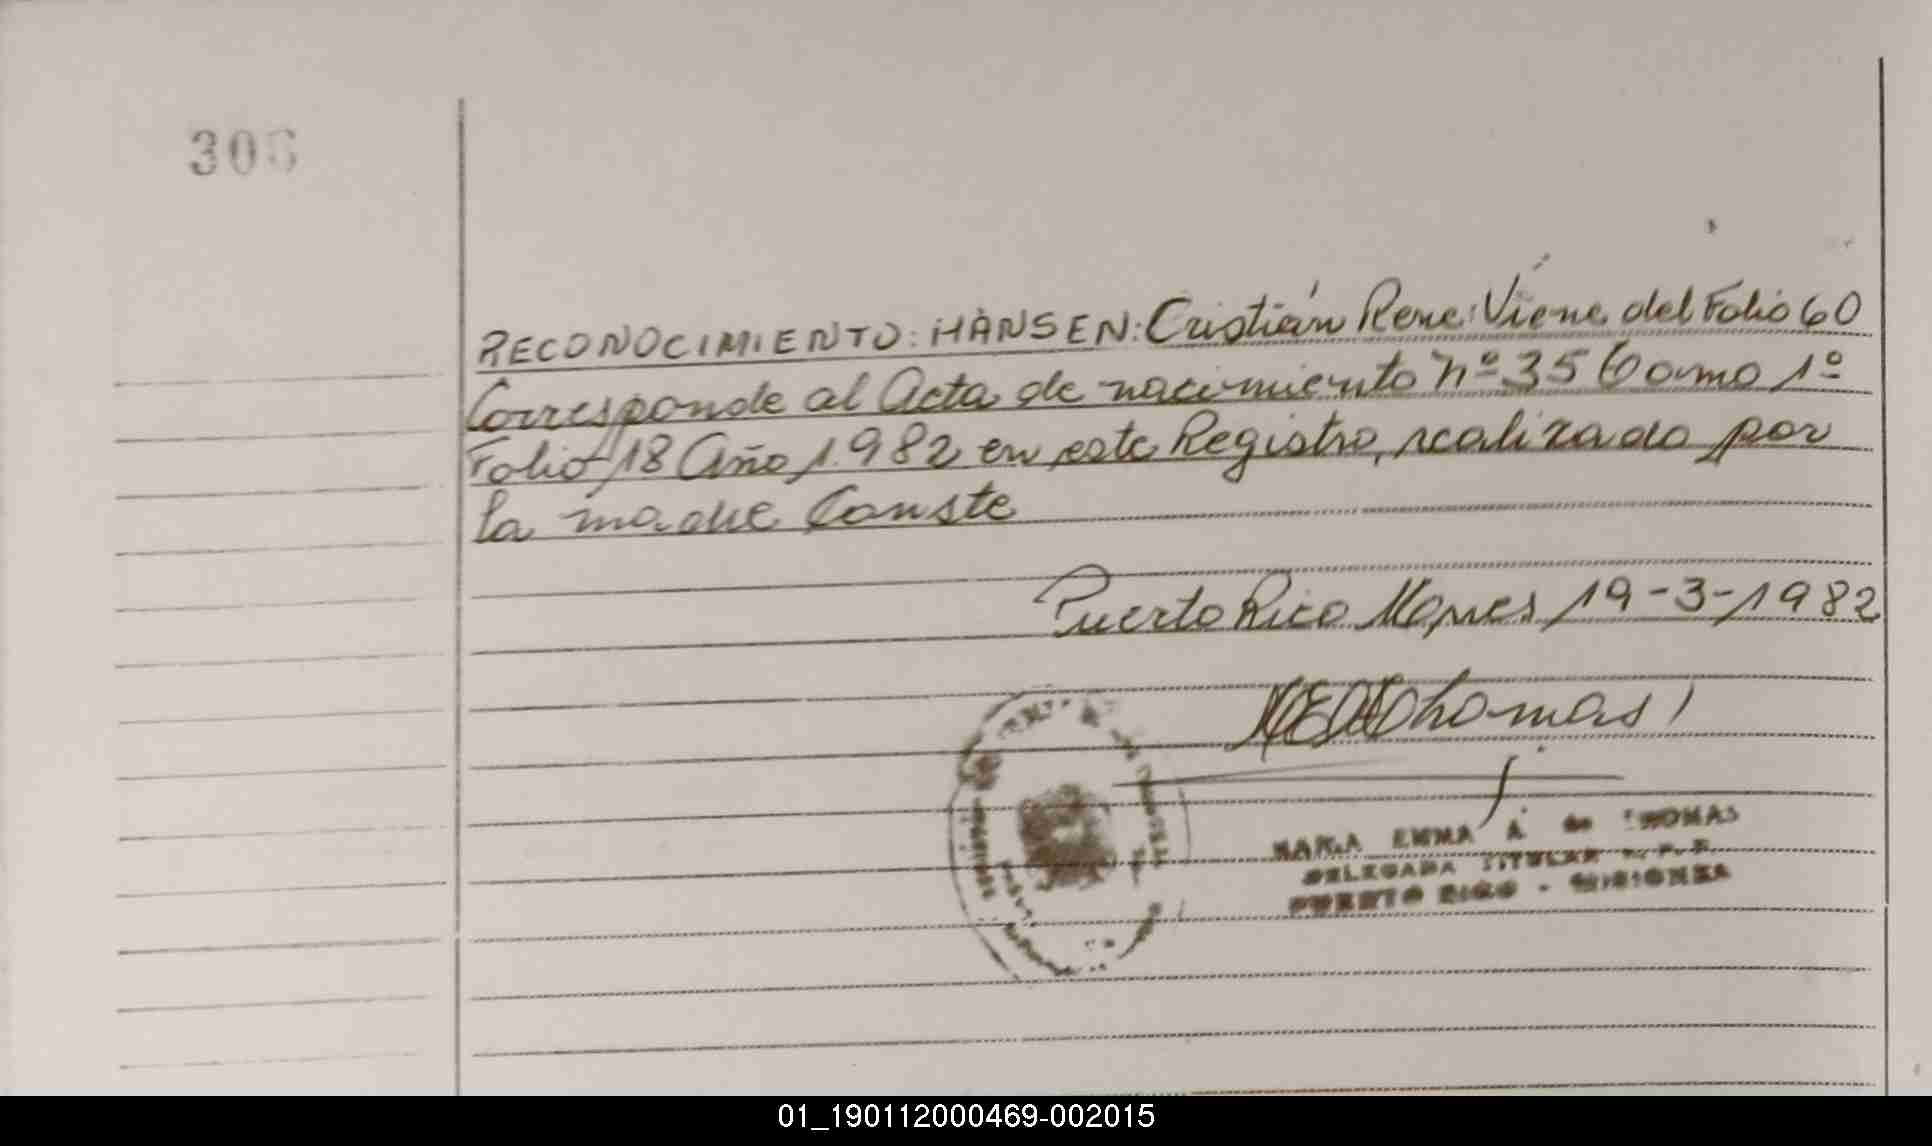 306
RECONOCIMIENTO: HANSEN: Cristián Rene: Viene del Folio 60
Corresponde al Acta de nacimiento nº 356 Tomo 1º
Folio 18 Año 1982 en este Registro, realizado por
la madre Conste
Puerto Rico Mones 19-3-1982
Thomas
MARIA EMMA A. de THOMAS
DELEGADA TITULAR R. P. P.
PUERTO RICO - MISIONES
01_190112000469-002015